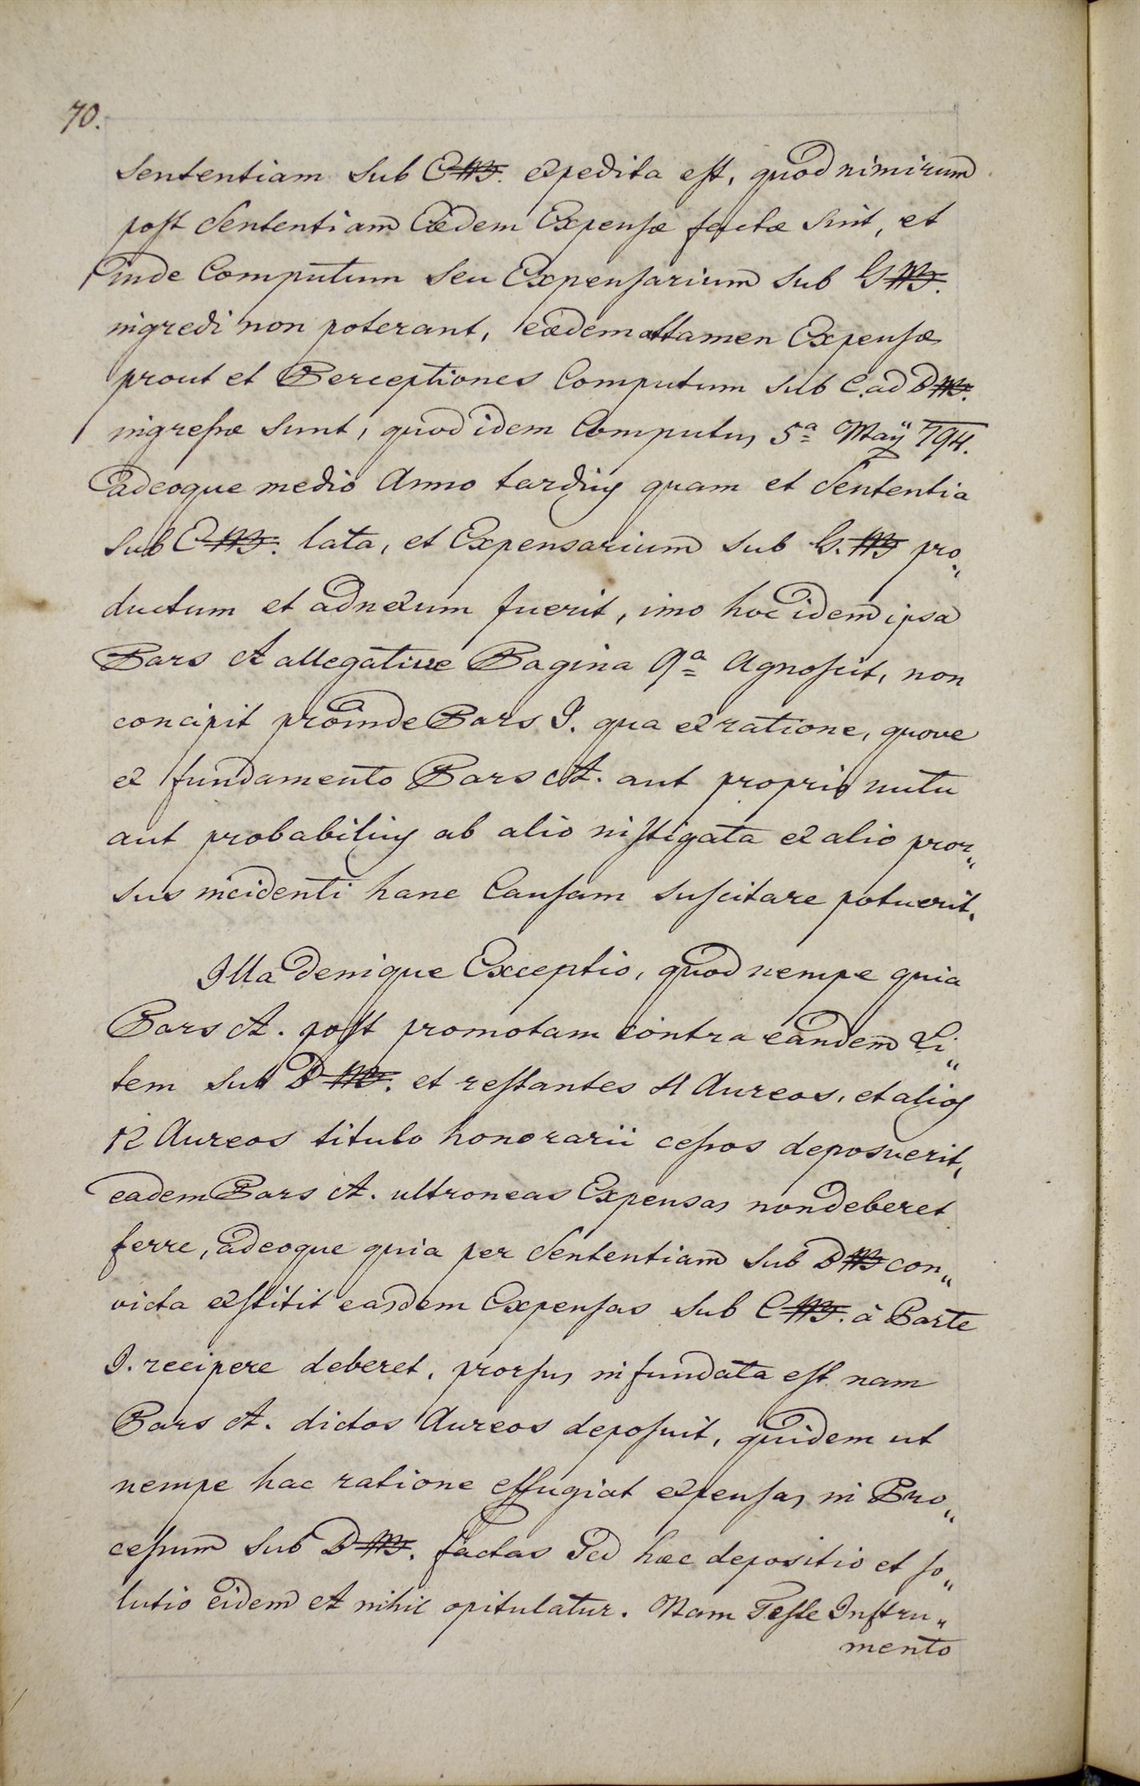 70.
sententiam sub C expedita est, quod nimirum
post sententiam Eædem Expensæ factæ sint, et
inde Computum seu Expensarium sub G
ingredi non poterant, eædem attamen Expensæ
prout et Perceptiones Computum sub C. ad D
ingressæ sunt, quod idem Computus 5ª Maÿ 794.
adeoque medio Anno tardius quam et Sententia
sub C lata, et Expensarium sub G. pro„
ductum et adnexum fuerit, imo hoc idem ipsa
Pars A allegative Pagina 9ª Agnoscit, non
concipit proinde Pars I. qua ex ratione, quove
ex fundamento Pars A. aut proprio nutu
aut probabilius ab alio instigata ex alio pror„
sus incidenti hanc Causam suscitare potuerit.
Illa denique Exceptio, quod nempe quia
Pars A. post promotam contra eandem Li„
tem sub D et restantes 4 Aureos, et alios
12 Aureos titulo honorarii cessos deposuerit,
eadem Pars A. ultroneas Expensas non deberet
ferre, adeoque quia per Sententiam sub D con„
victa extitit easdem Expensas sub C à Parte
I. recipere deberet, prorsus infundata est nam
Pars A. dictos Aureos deposuit, quidem ut
nempe hac ratione effugiat expensas in Pro„
cessum sub D factas Sed hæc depositio et so„
lutio eidem A nihil opitulatur. Nam Teste Instru„
mento